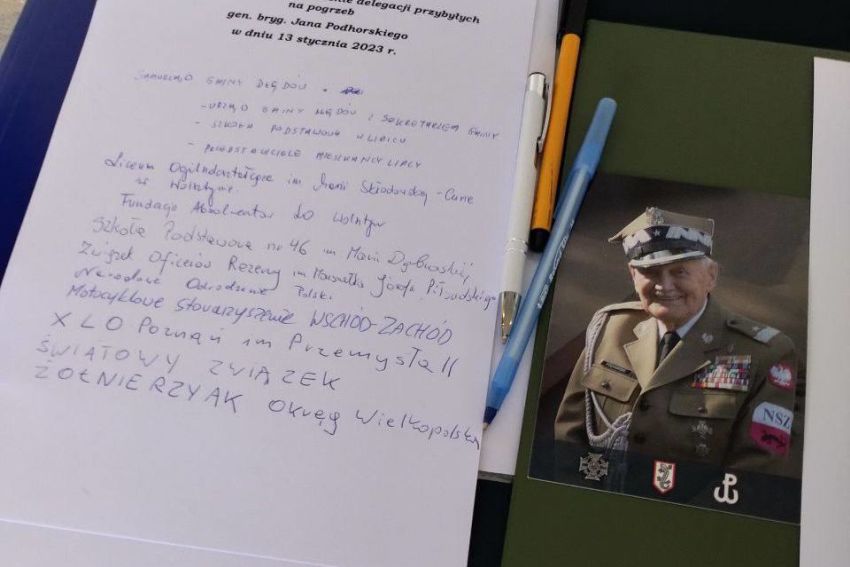 delegacji przybyłych
na pogrzeb
gen. bryg. Jana Podhorskiego
w dniu 13 stycznia 2023 r.
GMINY
- URZĄD GMINY I SEKRETARZEM GMINY
- SZKOŁA PODSTAWOWA W LIPICU
- MIESZKAŃCY LIPICY
Liceum Ogólnokształcące im Marii Skłodowskiej-Curie
w Wolsztynie
Fundacja Absolwentów LO Wolsztyn
Szkoła Podstawowa nr 46 im Marii Dąbrowskiej
Związek Oficerów Rezerwy im Marszałka Józefa Piłsudskiego
Narodowe Odrodzenie Polski
Motocyklowe Stowarzyszenie WSCHÓD-ZACHÓD
XLO Poznań im Przemysła II
ŚWIATOWY ZWIĄZEK
ŻOŁNIERZY AK Okręg Wielkopolska
NSZ